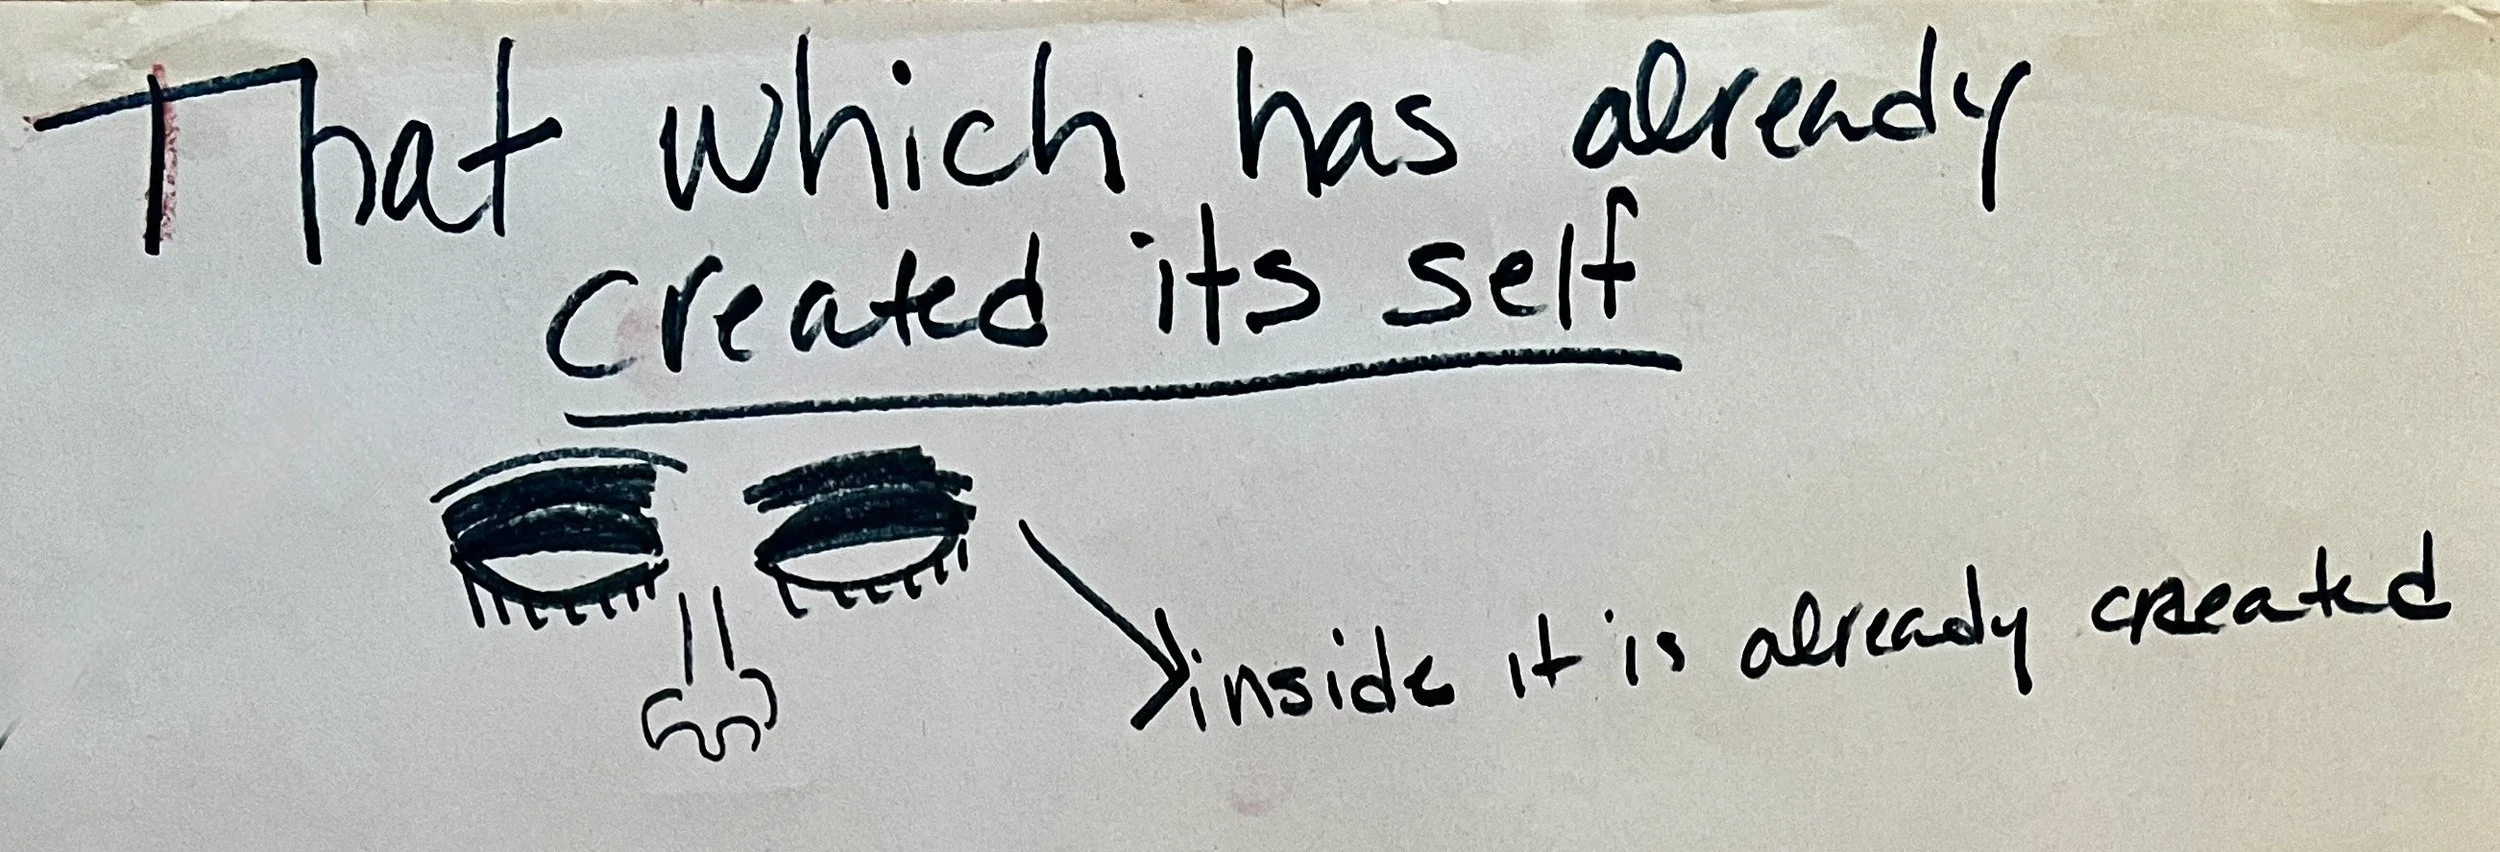 That which has already
created its self
inside it is already created